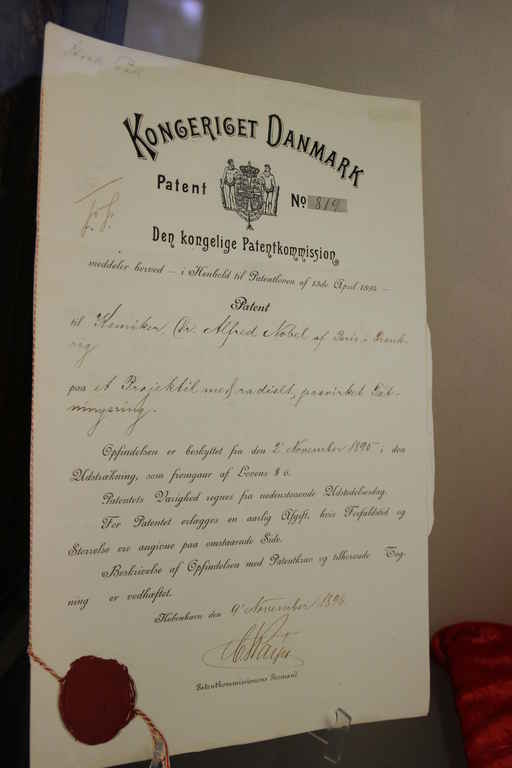 KONGERIGET DANMARK
Patent No 819
Den kongelige Patentkommission
meddeler herved — i Henhold til Patentloven af 13de April 1894 —
Patent
til Kemiker Dr. Alfred Nobel af Paris i Frank-
rig
paa et Projektil med radialt, paavirket Tæt-
ningsring.
Opfindelsen er beskyttet fra den 2' November 1895, i den
Udstrækning, som fremgaar af Lovens § 6.
Patentets Varighed regnes fra nedenstaaende Udstedelsesdag.
For Patentet erlægges en aarlig Afgift, hvis Forfaldstid og
Størrelse ere angivne paa omstaaende Side.
Beskrivelse af Opfindelsen med Patentkrav og tilhørende Teg-
ning er vedhæftet.
København den 9' November 1896
Patentkommissionens Formand